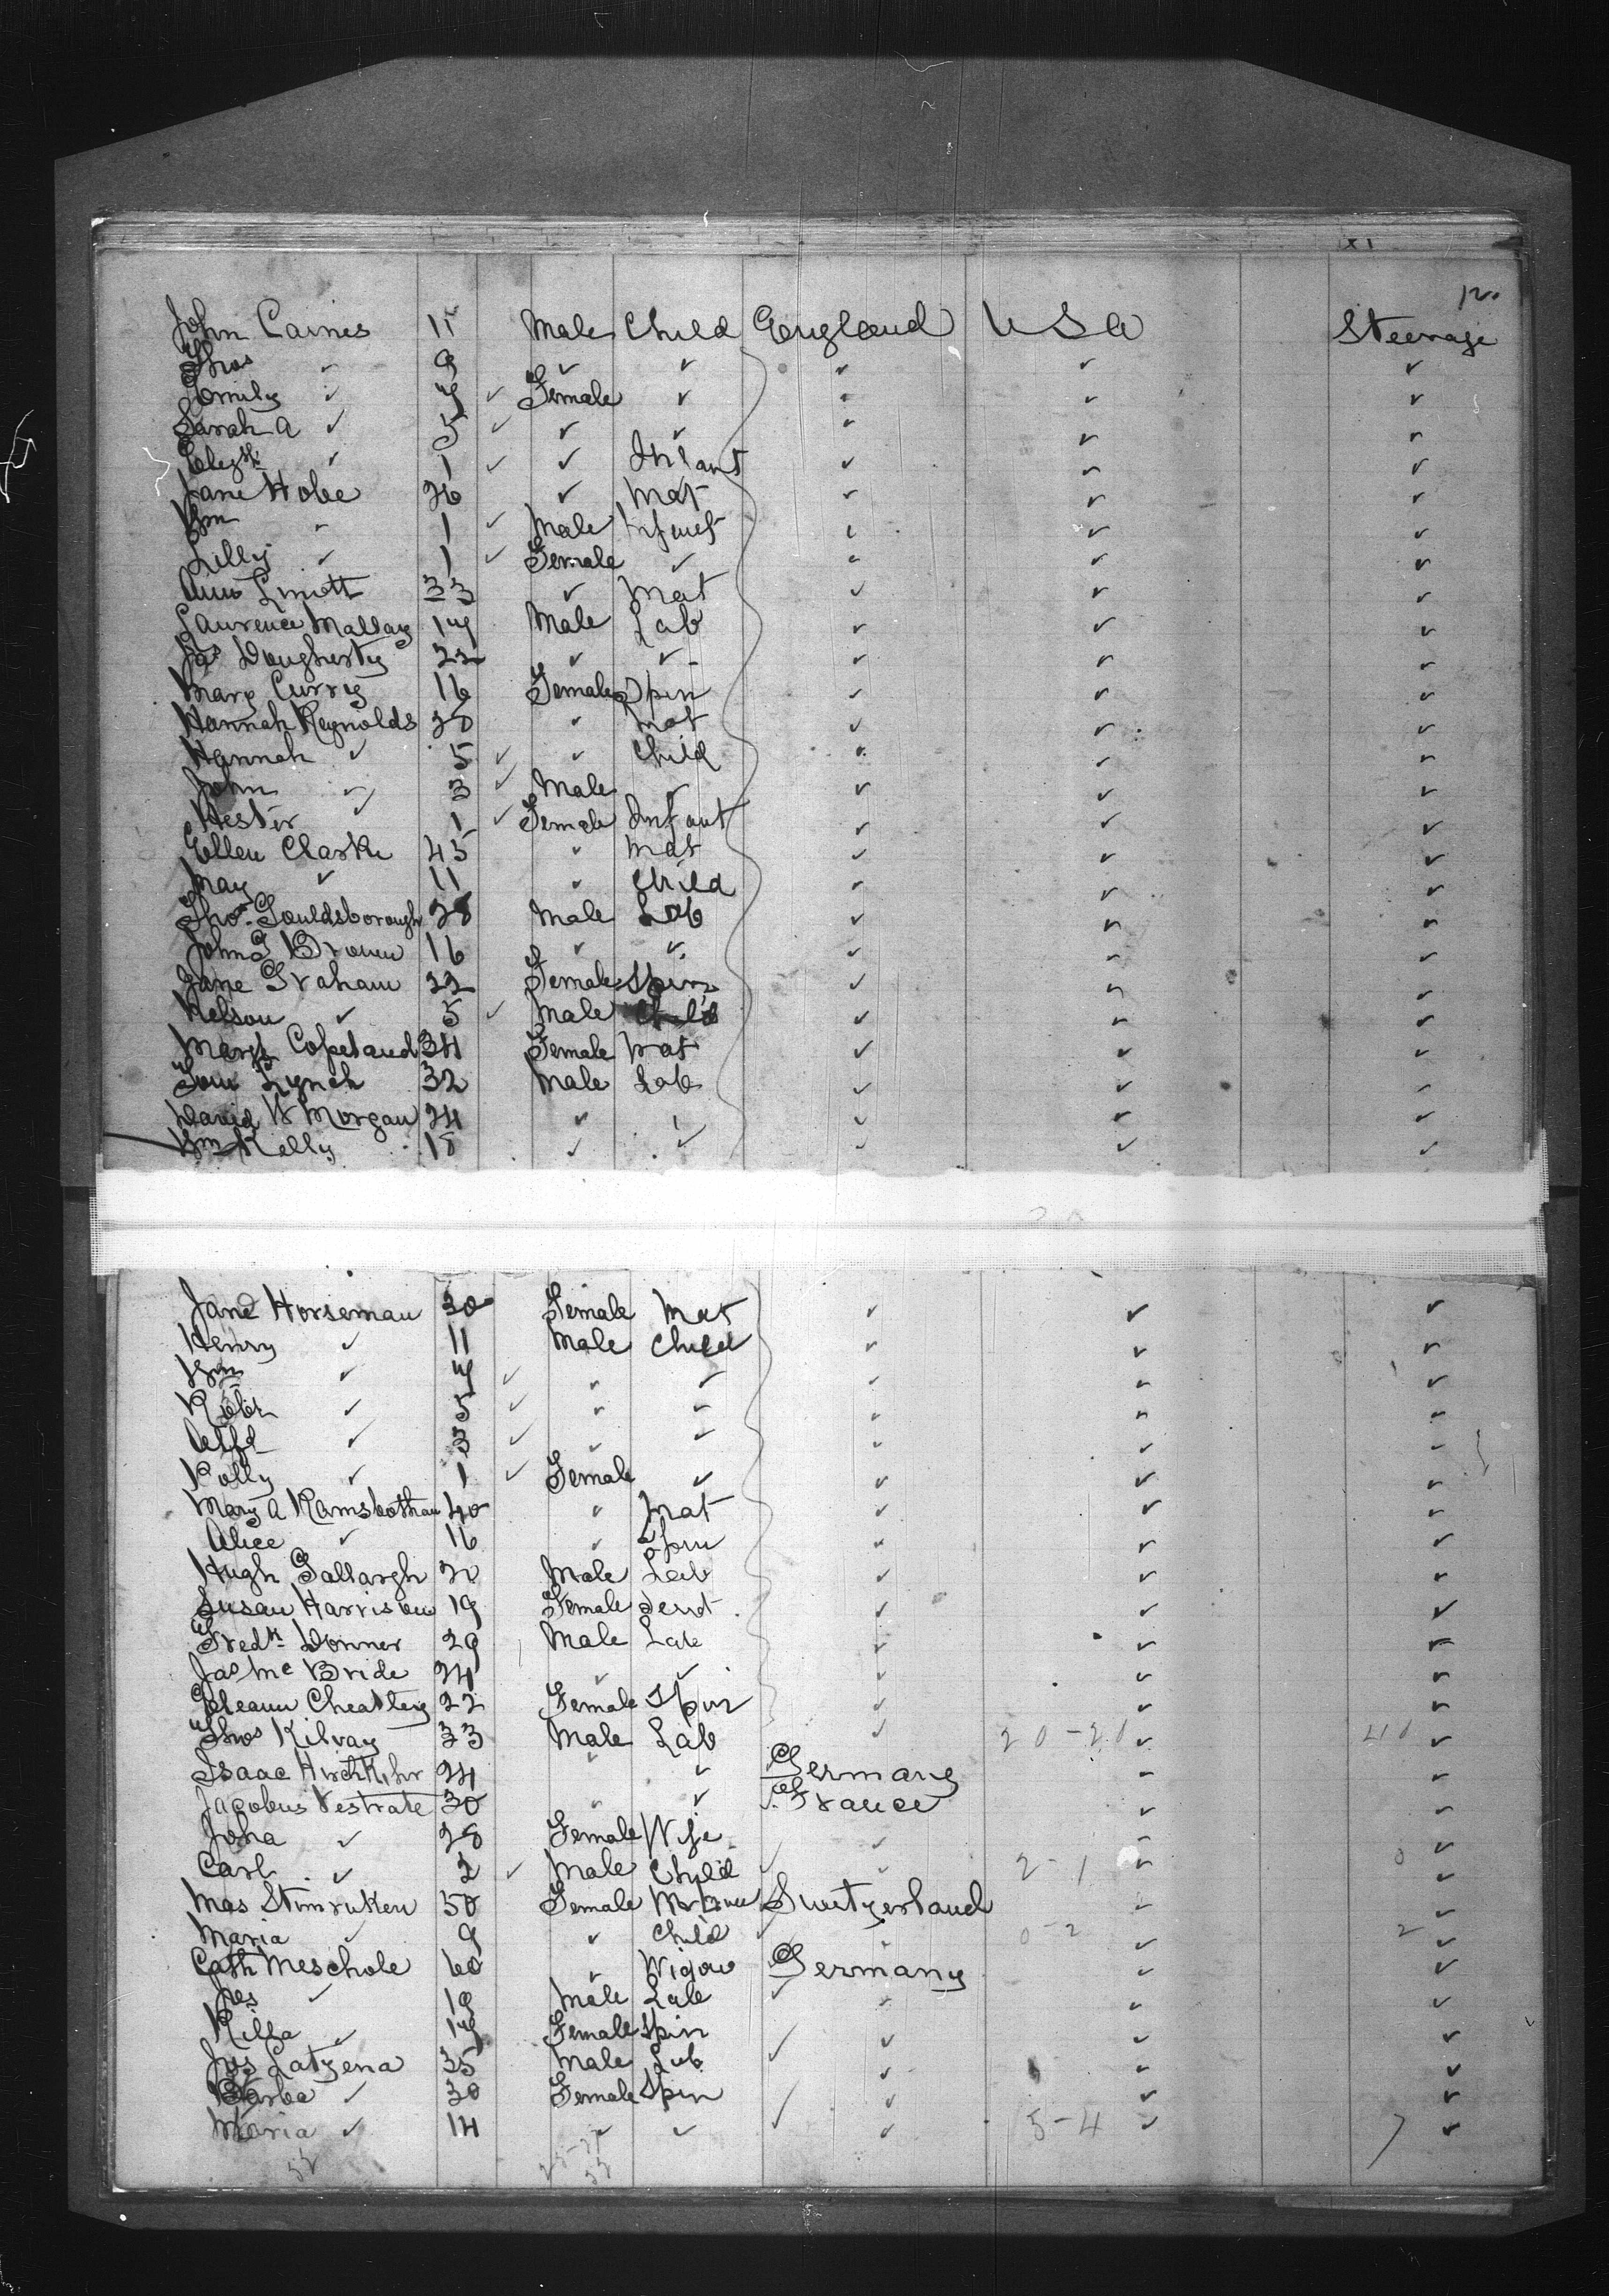 12.
John Caines 11 Male Child England U S A Steerage
Thos ✓ 9 ✓ ✓ ✓ ✓ ✓
Emily ✓ 7 ✓ Female ✓ ✓ ✓ ✓
Sarah A ✓ 5 ✓ ✓ ✓ ✓ ✓ ✓
Elizth ✓ 1 ✓ ✓ Infant ✓ ✓ ✓
Jane Hobe 26 ✓ Mat ✓ ✓ ✓
Wm ✓ 1 ✓ Male Infant ✓ ✓ ✓
Lilly ✓ 1 ✓ Female ✓ ✓ ✓ ✓
Ann 33 ✓ Mat ✓ ✓ ✓
Laurence Mallay 17 Male Lab ✓ ✓ ✓
Jas Dougherty 22 ✓ ✓ ✓ ✓ ✓
Mary Curry 16 Female Spin ✓ ✓ ✓
Hannah Reynolds 28 ✓ Mat ✓ ✓ ✓
Hannah ✓ 5 ✓ ✓ Child ✓ ✓ ✓
John ✓ 3 ✓ Male ✓ ✓ ✓ ✓
Hester ✓ 1 ✓ Female Infant ✓ ✓ ✓
Ellen Clarke 45 ✓ Mat ✓ ✓ ✓
May ✓ 11 ✓ Child ✓ ✓ ✓
Thos. Gouldsborough 28 Male Lab ✓ ✓ ✓
John G Brown 16 ✓ ✓ ✓ ✓ ✓
Jane Graham 22 Female Spin ✓ ✓ ✓
Nelson ✓ 5 ✓ Male Child ✓ ✓ ✓
Mary Copeland 34 Female Mat ✓ ✓ ✓
Tom Lynch 32 Male Lab ✓ ✓ ✓
David W Morgan 24 ✓ ✓ ✓ ✓ ✓
Wm Kelly 18 ✓ ✓ ✓ ✓ ✓
Jane Horseman 30 Female Mat ✓ ✓ ✓
Henry ✓ 11 Male Child ✓ ✓ ✓
Wm ✓ 7 ✓ ✓ ✓ ✓ ✓ ✓
Robt ✓ 5 ✓ ✓ ✓ ✓ ✓ ✓
Alfd ✓ 3 ✓ ✓ ✓ ✓ ✓ ✓
Polly ✓ 1 ✓ Female ✓ ✓ ✓ ✓
Mary A Ramsbotham 40 ✓ Mat ✓ ✓ ✓
Alice ✓ 16 ✓ Spin ✓ ✓ ✓
Hugh Gallargh 20 Male Lab ✓ ✓ ✓
Susan Harrison 19 Female Servt. ✓ ✓ ✓
Fredk Donner 29 Male Lab ✓ ✓ ✓
Jas Mc Bride 24 ✓ ✓ ✓ ✓ ✓
Cheatley 22 Female Spin ✓ ✓ ✓
Thos Kilvay 33 Male Lab ✓ 20-20 ✓ 40 ✓
Isaac 24 ✓ ✓ Germany ✓ ✓
Jacobus Vestrate 30 ✓ ✓ France ✓ ✓
Joha ✓ 28 Female Wife ✓ ✓ ✓
Carl ✓ 2 ✓ Male Child ✓ 2-1 ✓ 0 ✓
Mas Stimruken 50 Female Switzerland ✓ ✓
Maria ✓ 9 ✓ Child ✓ 0-2 ✓ 2 ✓
Cath Meschole 60 ✓ Widow Germany ✓ ✓
Jos ✓ 19 Male Lab ✓ ✓ ✓
Rilla ✓ 17 Female Spin ✓ ✓ ✓
Jos Latzena 35 Male Lab ✓ ✓ ✓
Barba ✓ 30 Female Spin ✓ ✓ ✓
Maria ✓ 14 ✓ ✓ ✓ 5-4 ✓ 7 ✓